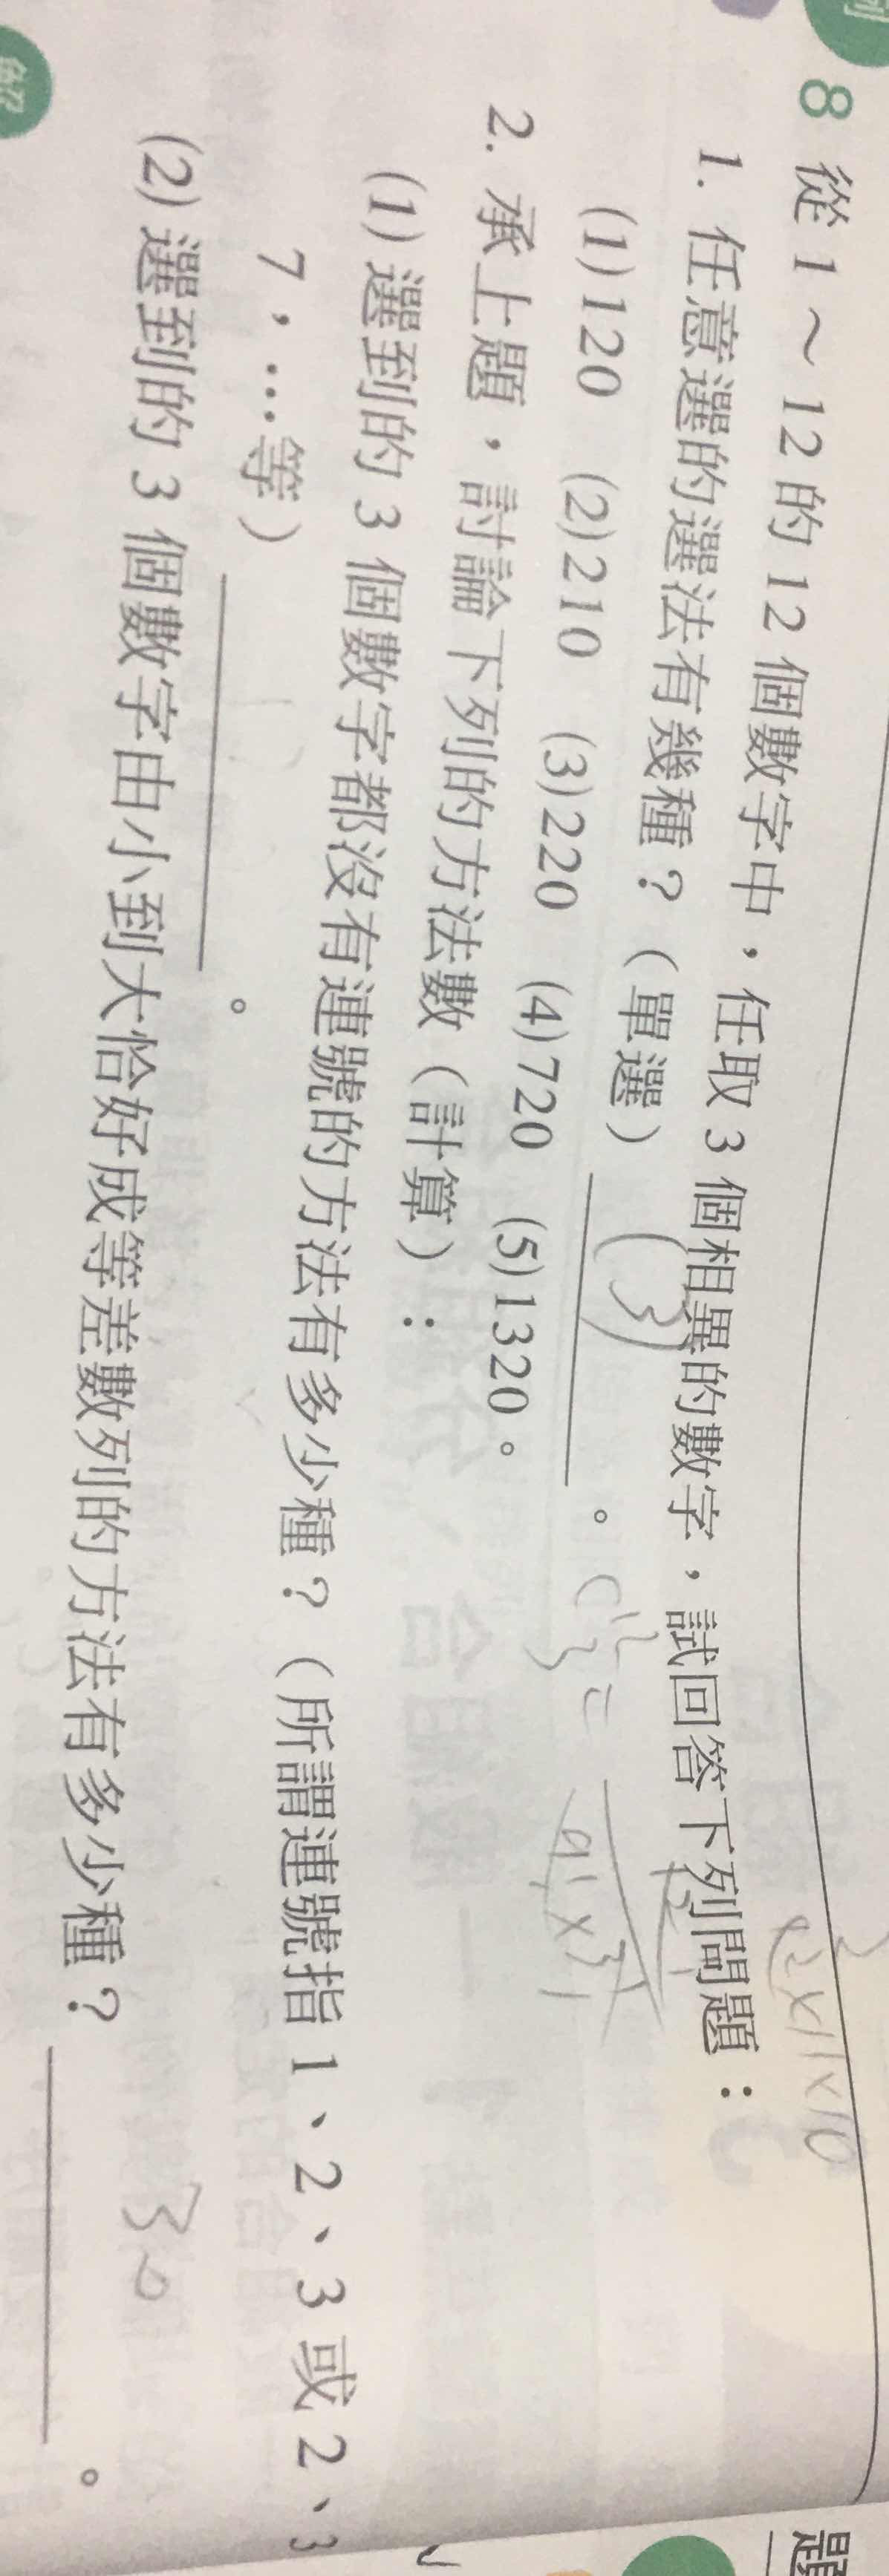 列
8 從 1 ～ 12 的 12 個數字中，任取 3 個相異的數字，試回答下列問題：
1. 任意選的選法有幾種？（單選） (3) 。
(1)120 (2)210 (3)220 (4)720 (5)1320。
2. 承上題，討論下列的方法數（計算）：
(1) 選到的 3 個數字都沒有連號的方法有多少種？（所謂連號指 1、2、3 或 2、3
7，…等） 。
(2) 選到的 3 個數字由小到大恰好成等差數列的方法有多少種？ 30 。
解
題